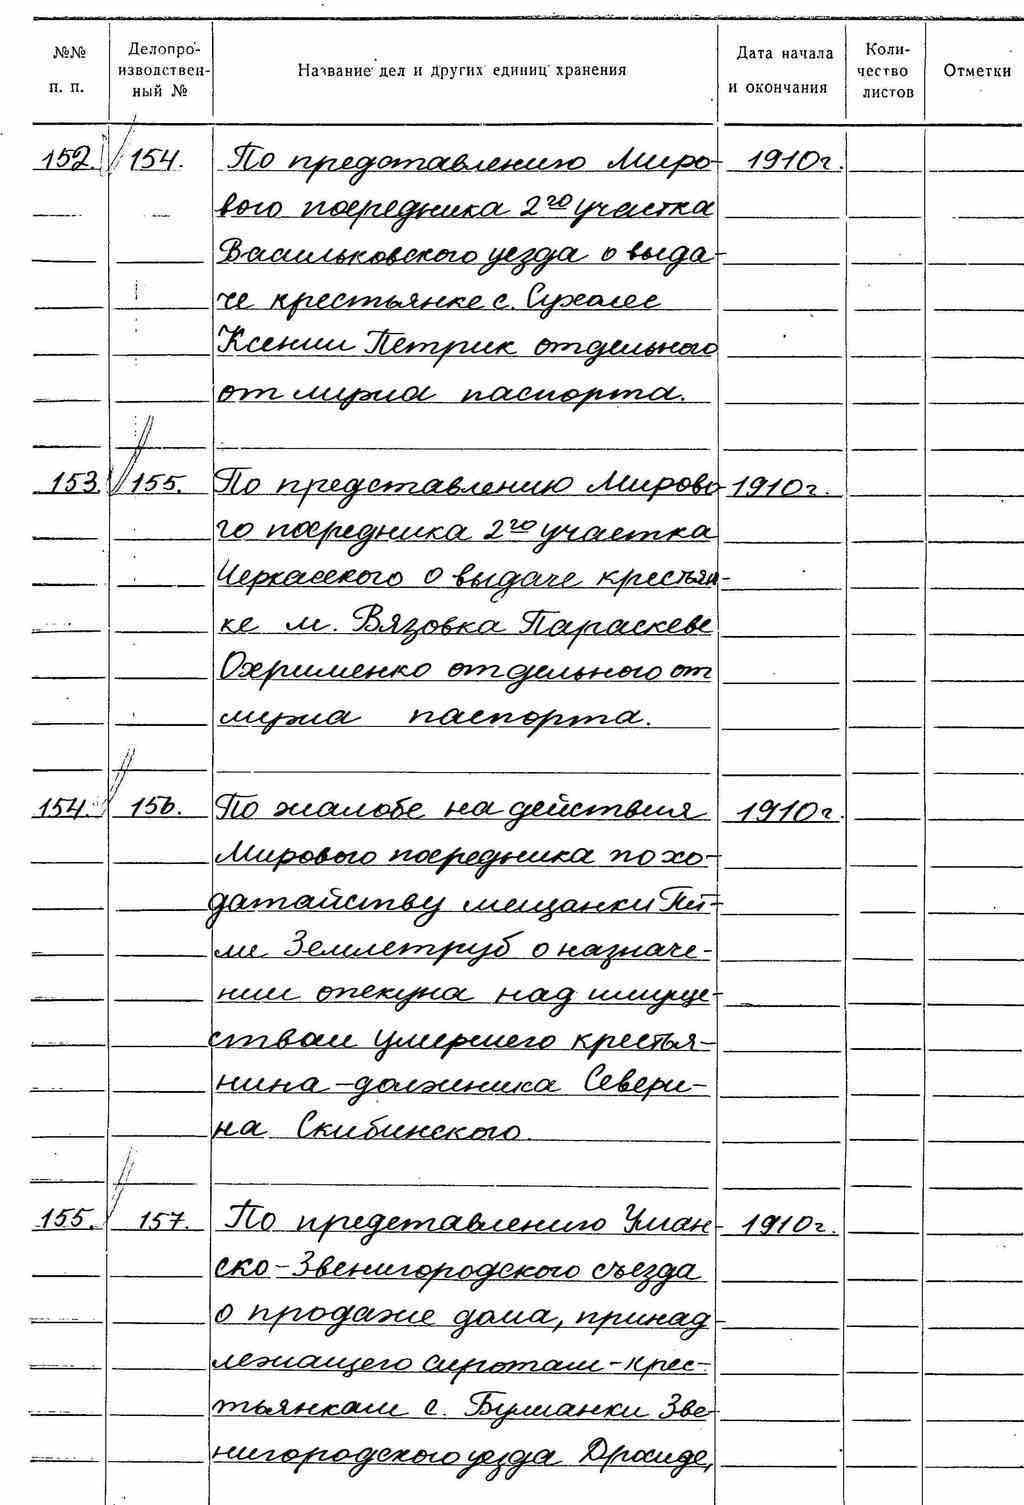 №№ п. п. Делопроизводственный № Название дел и других единиц хранения Дата начала и окончания Количество листов Отметки
152. 154. По представлению Миро- 1910г.
вого посредника 2го участка
Васильковского уезда о выда-
че крестьянке с. Сухолес
Ксении Петрик отдельного
от мужа паспорта.
153. 155. По представлению Мирово 1910г.
го посредника 2го участка
Черкасского о выдаче крестьян-
ке м. Вязовка Параскеве
Охрименко отдельного от
мужа паспорта.
154. 156. По жалобе на действия 1910г.
Мирового посредника по хо-
датайству мещанки
Землетруб о назначе-
нии опекуна над имуще-
ством умершего крестья-
нина-должника Севери-
на Скибинского.
155. 157. По представлению Уман- 1910г.
ско-Звенигородского съезда
о продаже дома, принад-
лежащего сиротам-крес-
тьянкам с. Бужанки Зве-
нигородского уезда